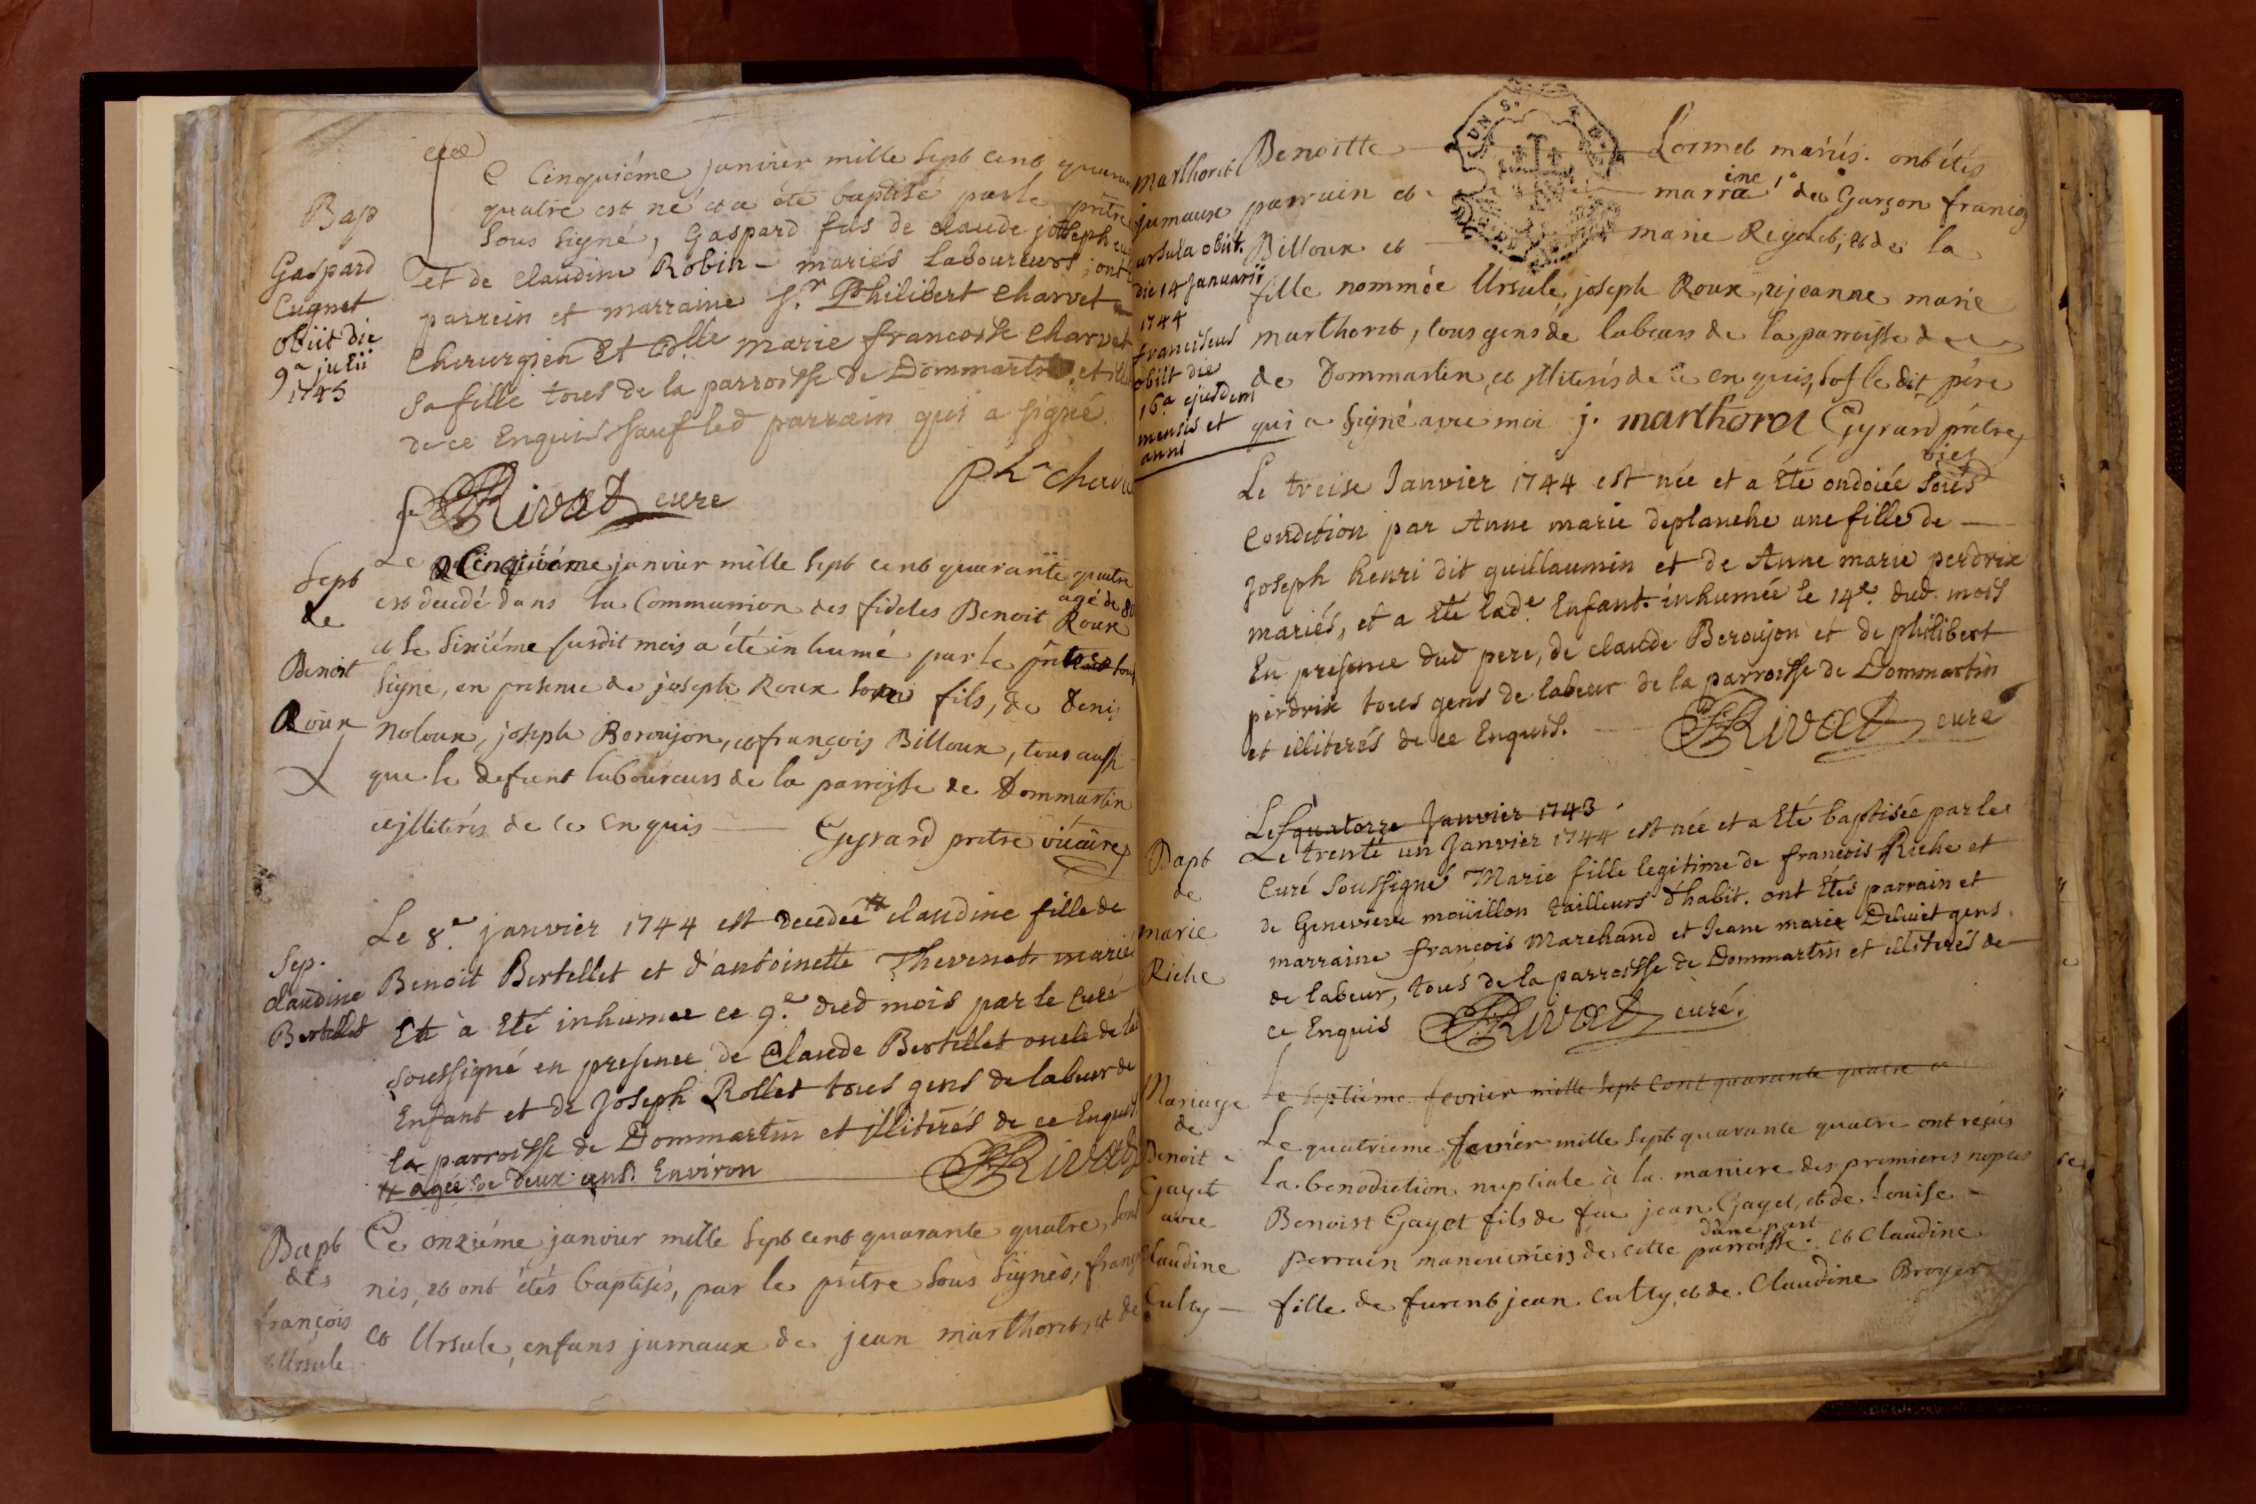 Bap
Gaspard
Cugnet
obiit die
9a julii
1745
Ce Cinquiéme janvier mille sept cent quaran
quatre est né et a été baptisé par le prêtre
sous signé, Gaspard fils de claude joseph
et de claudine Robin mariés Laboureurs, ont
parrein et marraine Sr. Philibert Charvet
Chirurgien Et Dlle marie francoise Charvet
sa fille tous de la parroisse de Dommartin et
de ce Enquis sauf led parrain qui a signé
Rivat cure
Sept
de
Benoit
Roux
Le Cinquiéme janvier mille sept cent quarante quatre
est decedé dans la Communion des fideles Benoit Roux
agé de 80
et le sixiéme susdit mois a été inhumé par le prêtre sous
signé, en presence de joseph Roux son fils, de Denis
Noloux, joseph Beroujon, et françois Billoux, tous aussi
que le defunt laboureurs de la parroisse de Dommartin
et jlliterés de ce enquis
Gyrard prêtre vicaire
Sep.
claudine
Bertellet
Le 8e janvier 1744 est decedée # claudine fille de
Benoit Bertellet et d'antoinette Thevenet mariés
Et à Eté inhumee ce 9e dud mois par le Curé
soussigné en presence de Claude Bertellet oncle de la
Enfant et de Joseph Rollet tous gens de labeur de
la parroisse de Dommartin et jlliterés de ce Enquis
# agée de deux ans Environ
Rivat
Bapt
des
françois
et Ursule
Ce onziéme janvier mille sept cent quarante quatre, sont
nés, et ont étés baptisés, par le prêtre sous signés, franç
et Ursule, enfans jumaux de jean marthoret, et de
marthoret
jumaux
ursula obiit
die 14 Januarii
1744
franciscus
obiit die
16a ejusdem
mensis et
anni
Benoitte Lornet mariés. ont étés
parrain et marraine, 1o du Garçon françois
Billoux et marie Rigolet, et de la
fille nommée Ursule, joseph Roux, et jeanne marie
marthoret, tous gens de labeurs de la parroisse de
de Dommartin et jlliterés de ce enquis, sof le dit pére
qui a signé avec moi j. marthoret Gyrard prêtre
vics
Le treise Janvier 1744 est née et a été ondoiée sous
Condition par Anne marie deplanche une fille de
Joseph henri dit guillaumin et de Anne marie perdrix
mariés, et a Eté lade Enfant inhumée le 14e dud. mois
En presence dud pere, de claude Beroujon et de philibert
perdrix tous gens de labeur de la parroisse de Dommartin
et illiterés de ce Enquis.
Rivat curé
Bapt
de
marie
Riche
Le quatorze Janvier 1743
Le trente un Janvier 1744 est née et a Eté baptisée par le
Curé soussigné Marie fille legitime de francois Riche et
de Genevieve moüillon tailleurs d'habit. ont Etés parrain et
marraine françois Marchand et Jeane marie Deluiet gens
de labeur, tous de la parroisse de Dommartin et illiterés de
ce Enquis Rivat curé.
Mariage
de
Benoit
Gayet
avec
Claudine
Culty
Le septiéme fevrier mille sept cent quarante quatre
Le quatrieme fevrier mille sept quarante quatre ont reçus
la benediction nuptiale à la maniere des premieres nopces
Benoist Gayet fils de feu jean Gayet, et de Louise
d'une part
Perrain manouvriers de cette parroisse. et Claudine
fille de furent jean Culty, et de Claudine Broyer